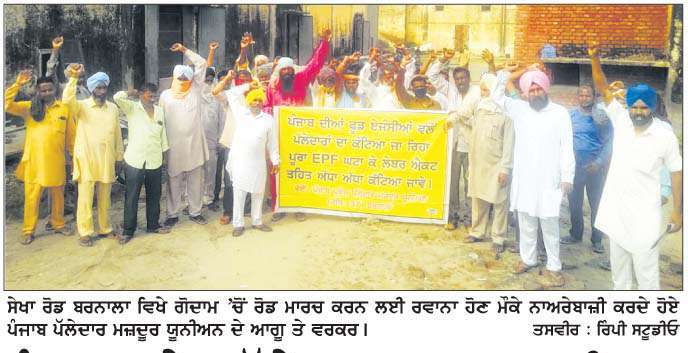 ਪੰਜਾਬ ਦੀਆਂ ਫੂਡ ਏਜੰਸੀਆਂ ਵਲੋਂ
ਪੱਲੇਦਾਰਾਂ ਦਾ ਕੱਟਿਆ ਜਾ ਰਿਹਾ
ਪੂਰਾ EPF ਘਟਾ ਕੇ ਲੇਬਰ ਐਕਟ
ਤਹਿਤ ਅੱਧਾ ਅੱਧਾ ਕੱਟਿਆ ਜਾਵੇ।
ਸੇਖਾ ਰੋਡ ਬਰਨਾਲਾ ਵਿਖੇ ਗੋਦਾਮ 'ਚੋਂ ਰੋਡ ਮਾਰਚ ਕਰਨ ਲਈ ਰਵਾਨਾ ਹੋਣ ਮੌਕੇ ਨਾਅਰੇਬਾਜ਼ੀ ਕਰਦੇ ਹੋਏ
ਪੰਜਾਬ ਪੱਲੇਦਾਰ ਮਜ਼ਦੂਰ ਯੂਨੀਅਨ ਦੇ ਆਗੂ ਤੇ ਵਰਕਰ। ਤਸਵੀਰ : ਰਿੰਪੀ ਸਟੂਡੀਓ